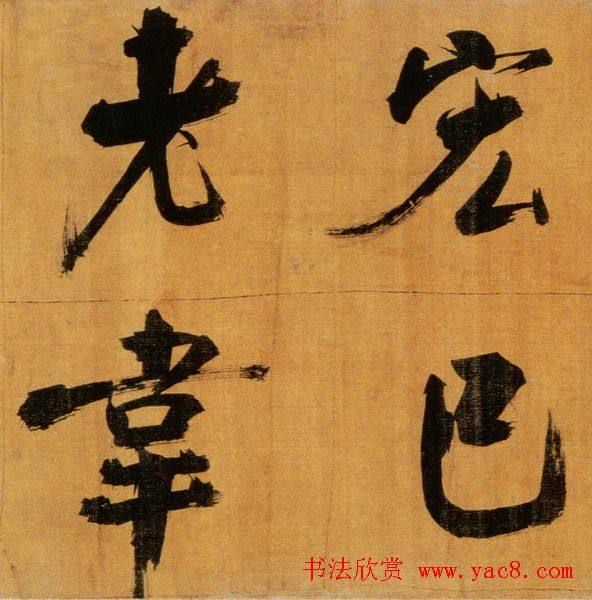 宏已
老韋
书法欣赏 www.yac8.com